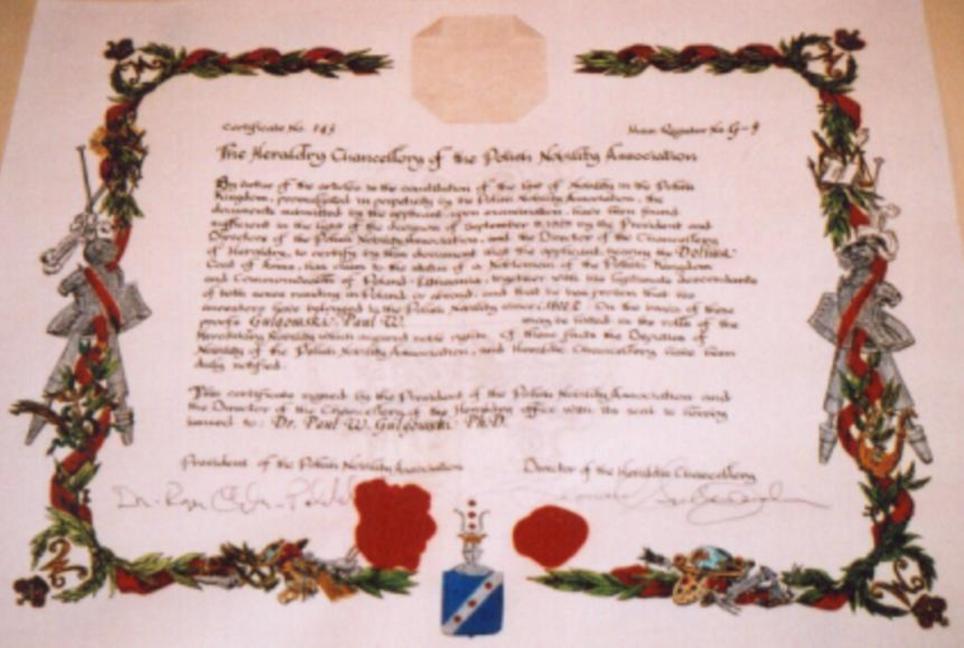 Certificate No. 143
Main Register No G-9
The Heraldry Chancellery of the Polish Nobility Association
By virtue of the articles in the constitution of the Law of Nobility in the Polish
Kingdom, promulgated in perpetuity by the Polish Nobility Association, the
documents submitted by the applicant, upon examination, have been found
sufficient in the light of the decision of September by the President and
Directors of the Polish Nobility Association, and the Director of the Chancellery
of Heraldry, to certify by this document that the applicant, bearing the "Doliwa"
Coat of Arms, has claim to the status of a Nobleman of the Polish Kingdom
and Commonwealth of Poland-Lithuania, together with his legitimate descendants
of both sexes residing in Poland or abroad, and that he has proven that his
ancestors have belonged to the Polish Nobility since On the basis of these
proofs Gulgowski Paul W. may be listed in the rolls of the
Hereditary Nobility which acquired noble rights. Of these facts the Deputies of
Nobility of the Polish Nobility Association, and Heraldic Chancellery have been
duly notified.
This certificate signed by the President of the Polish Nobility Association and
the Director of the Chancellery of the Heraldry office with its seal is hereby
issued to: Dr. Paul W. Gulgowski Ph.D.
President of the Polish Nobility Association
Director of the Heraldic Chancellery